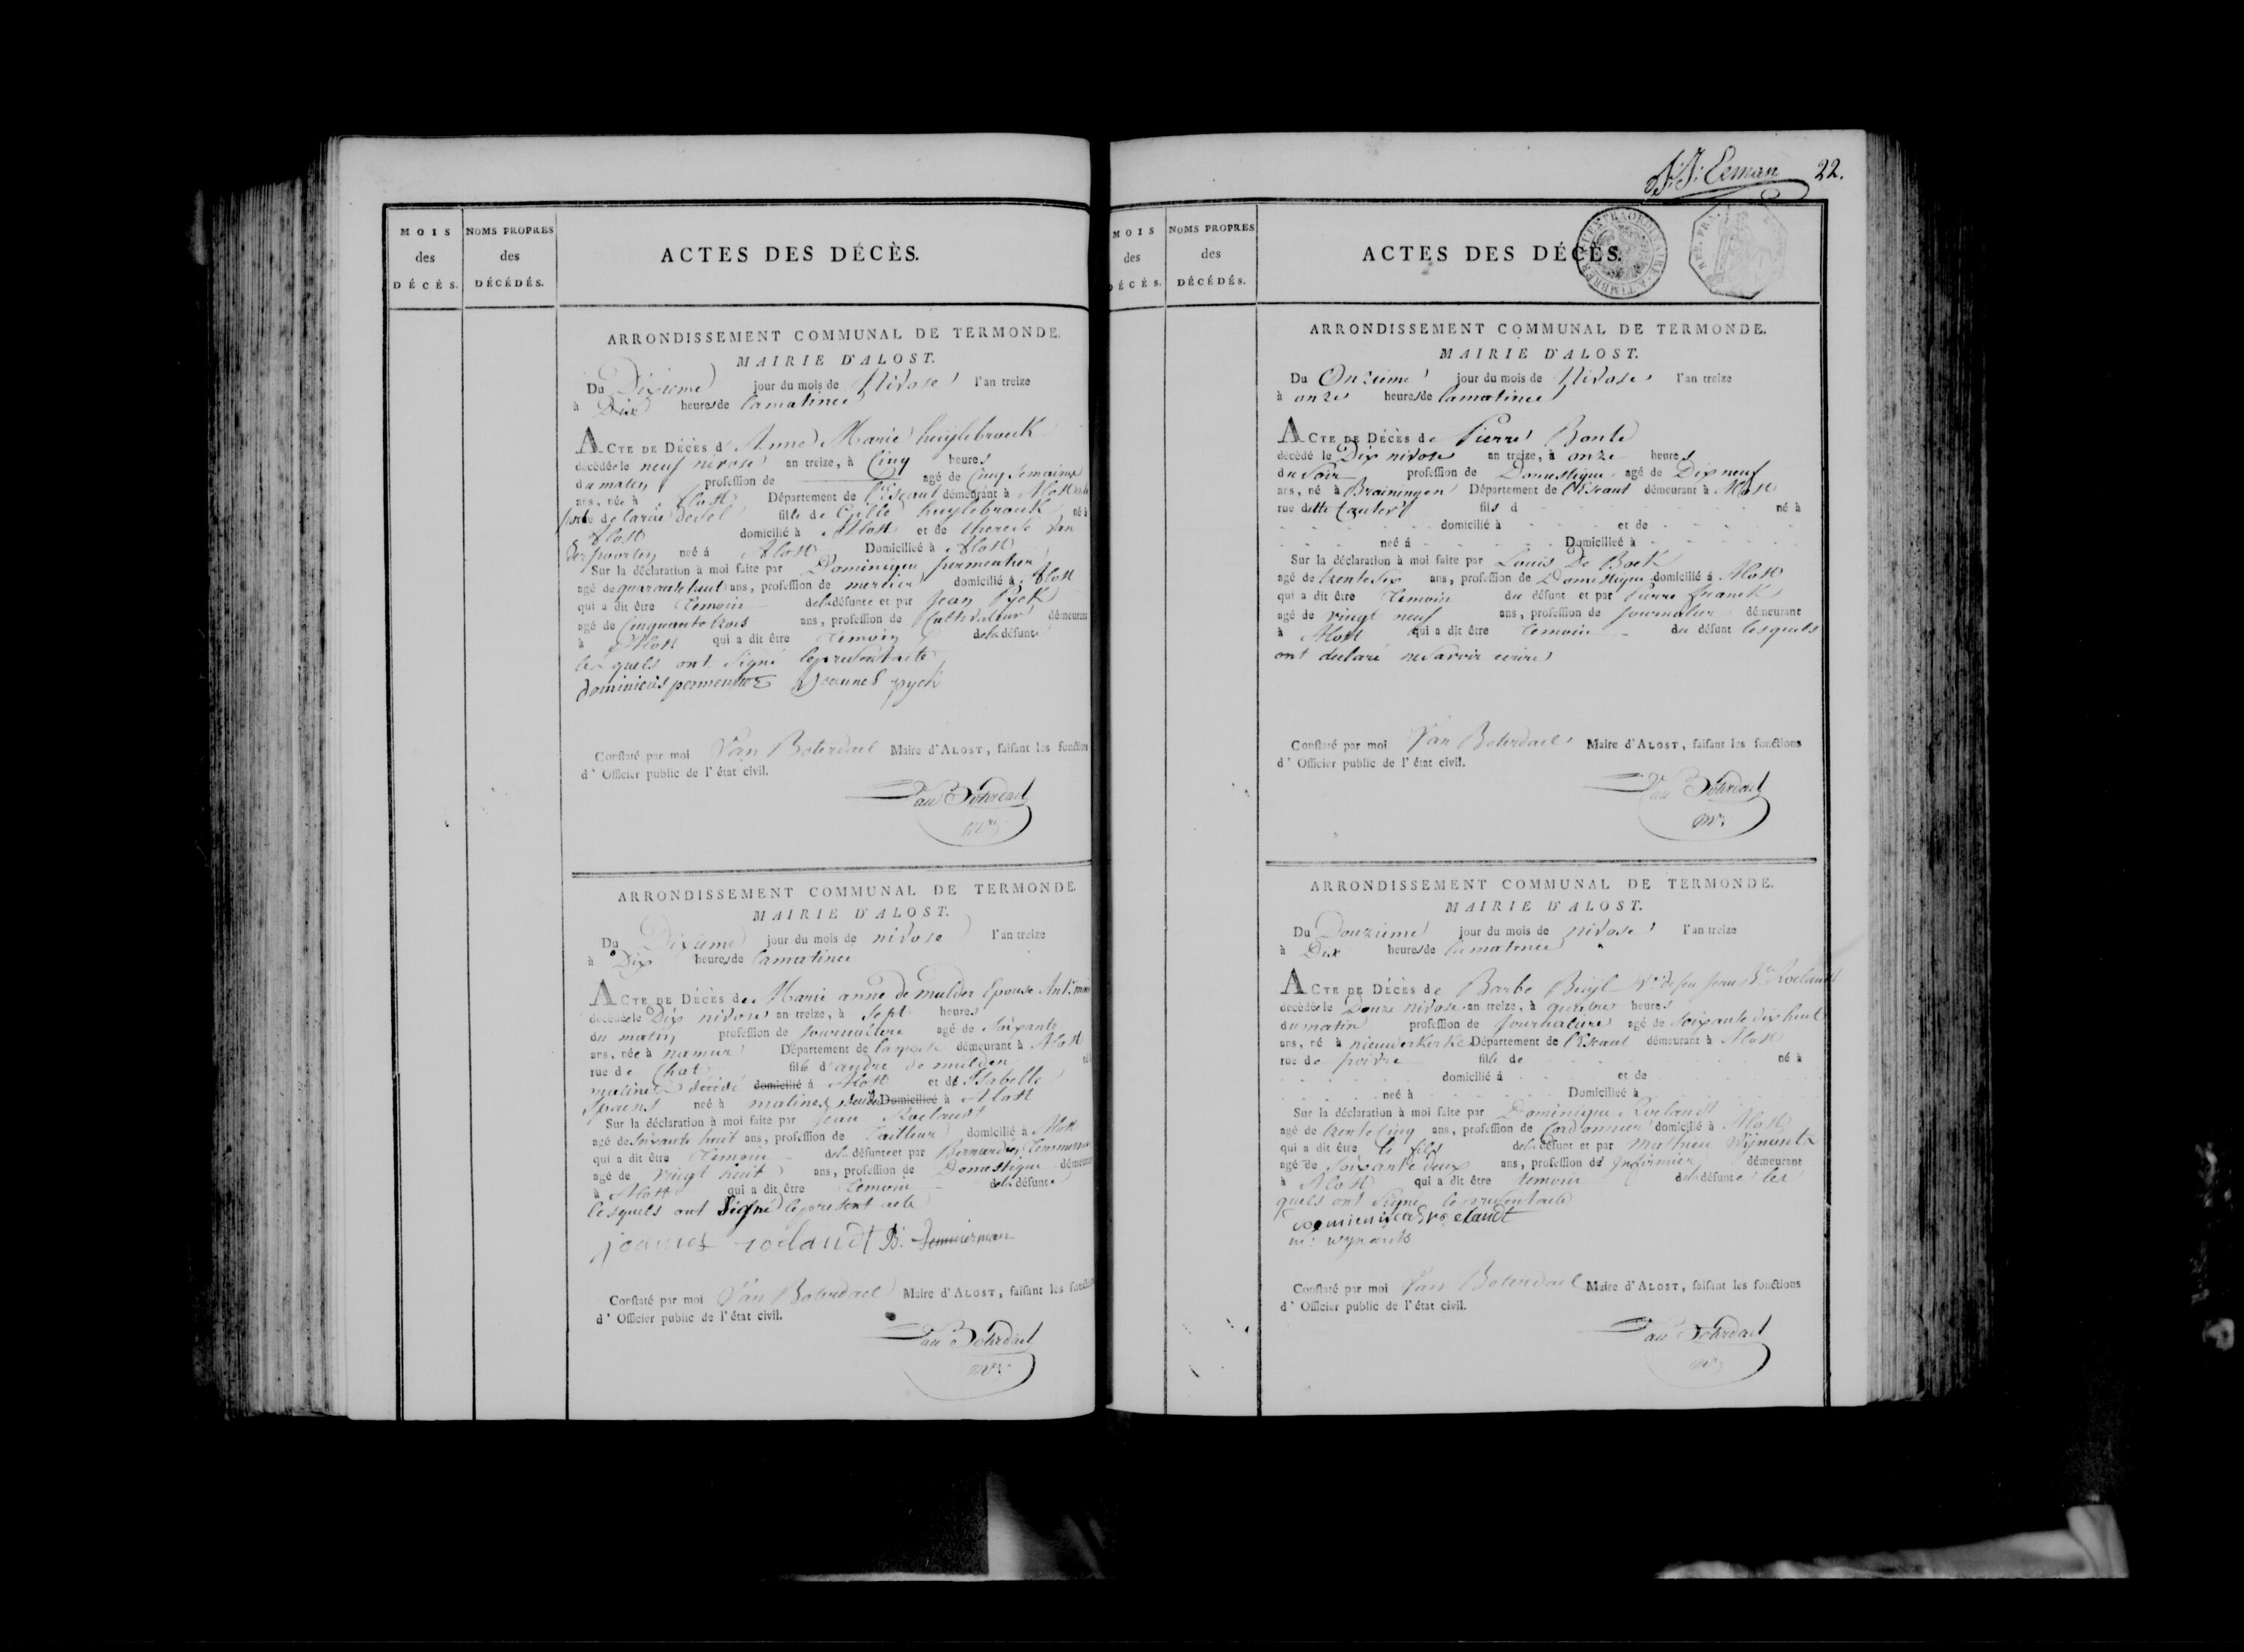 MOIS
des
DÉCÈS.
NOMS PROPRES
des
DÉCÉDÉS.
ACTES DES DÉCÈS.
ARRONDISSEMENT COMMUNAL DE TERMONDE.
MAIRIE D'ALOST.
Du Dixieme jour du mois de Nivose l'an treize
à Dix heures de la matinée
ACTE DE DÉCÈS d'Anne Marie huylebroeck
décédée le neuf nivose an treize, à Cinq heures
du matin profession de agé de Cinq Semaines
ans, née à Alost Département de l'Escaut démeurant à Alost
porte de la rue de sel fille de Gille huylebroeck né à
Alost domicilié à Alost et de therese Van
der poorten neé á Alost Domicilieé à Alost
Sur la déclaration à moi faite par Dominique permentier
agé de quarante huit ans, profession de mercier domicilié á Alost
qui a dit être temoin de la défunte et par Jean Pyck
agé de Cinquante trois ans, profession de Cultivateur démeurant
à Alost qui a dit être temoin de la défunte
les quels ont signé le present acte
Dominicus permentier Joannes pyck
Constaté par moi Van Boterdael Maire d'ALOST, faisant les fonctions
d'Officier public de l'état civil.
Van Boterdael
mre
ARRONDISSEMENT COMMUNAL DE TERMONDE.
MAIRIE D'ALOST.
Du Dixieme jour du mois de nivose l'an treize
à Dix heures de la matinée
ACTE DE DÉCÈS de Marie anne de mulder Epouse Ant:
décédée le Dix nivose an treize, à Sept heures
du matin profession de Journaliere agé de Soixante
ans, née à namur Département de démeurant à Alost
rue de Chat fille d'andre de mulder né
malines décédé domicilié á Alost et de Isabelle
Spaens neé à malines Domicilieé à Alost
Sur la déclaration à moi faite par Jean Roelandt
agé de Soixante huit ans, profession de Tailleur domicilié à Alost
qui a dit être temoin de la défunte et par Bernard
agé de vingt huit ans, profession de Domestique démeurant
à Alost qui a dit être temoin de la défunte
lesquels ont Signé le present acte
joannes roelandt B. Temmerman
Constaté par moi Van Boterdael Maire d'ALOST, faisant les fonctions
d'Officier public de l'état civil.
Van Boterdael
mre
22.
MOIS
des
DÉCÈS.
NOMS PROPRES
des
DÉCÉDÉS.
ACTES DES DÉCÈS.
REP. FRA.
ARRONDISSEMENT COMMUNAL DE TERMONDE.
MAIRIE D'ALOST.
Du Onzieme jour du mois de Nivose l'an treize
à onze heures de la matinée
ACTE DE DÉCÈS de Pierre Bonte
décédé le Dix nivose an treize, à onze heures
du Soir profession de Domestique agé de Dix neuf
ans, né à Département de l'Escaut démeurant à Alost
rue ditte fils d né à
domicilié à et de
neé á Domicilieé à
Sur la déclaration à moi faite par Louis De Bock
agé de trente Six ans, profession de Domestique domicilié á Alost
qui a dit être temoin du défunt et par Pierre franck
agé de vingt neuf ans, profession de Journalier démeurant
à Alost qui a dit être temoin du défunt lesquels
ont declaré ne savoir ecrire
Constaté par moi Van Boterdael Maire d'ALOST, faisant les fonctions
d'Officier public de l'état civil.
Van Boterdael
mre
ARRONDISSEMENT COMMUNAL DE TERMONDE.
MAIRIE D'ALOST.
Du Douzieme jour du mois de nivose l'an treize
à Dix heures de la matinée
ACTE DE DÉCÈS de Barbe Buyl Ve de feu Jean Bte Roelandt
décédée le Douze nivose an treize, à quatre heures
du matin profession de Journaliere agé de Soixante dix huit
ans, né à nieuwerkerke Département de l'Escaut démeurant à Alost
rue de poivre fille de né à
domicilié á et de
neé à Domicilieé à
Sur la déclaration à moi faite par Dominique Roelandt
agé de trente Cinq ans, profession de Cordonnier domicilié à Alost
qui a dit être le fils de la défunt et par mathieu Wijnants
agé de Soixante deux ans, profession de Infirmier démeurant
à Alost qui a dit être temoin de la défunte les
quels ont signé le present acte
Dominicus roelandt
m: wynants
Constaté par moi Van Boterdael Maire d'ALOST, faisant les fonctions
d'Officier public de l'état civil.
Van Boterdael
mre